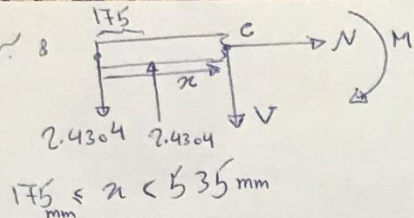 175
8
C
N
M
x
V
2.4304
2.4304
175 mm ≤ x < 535 mm